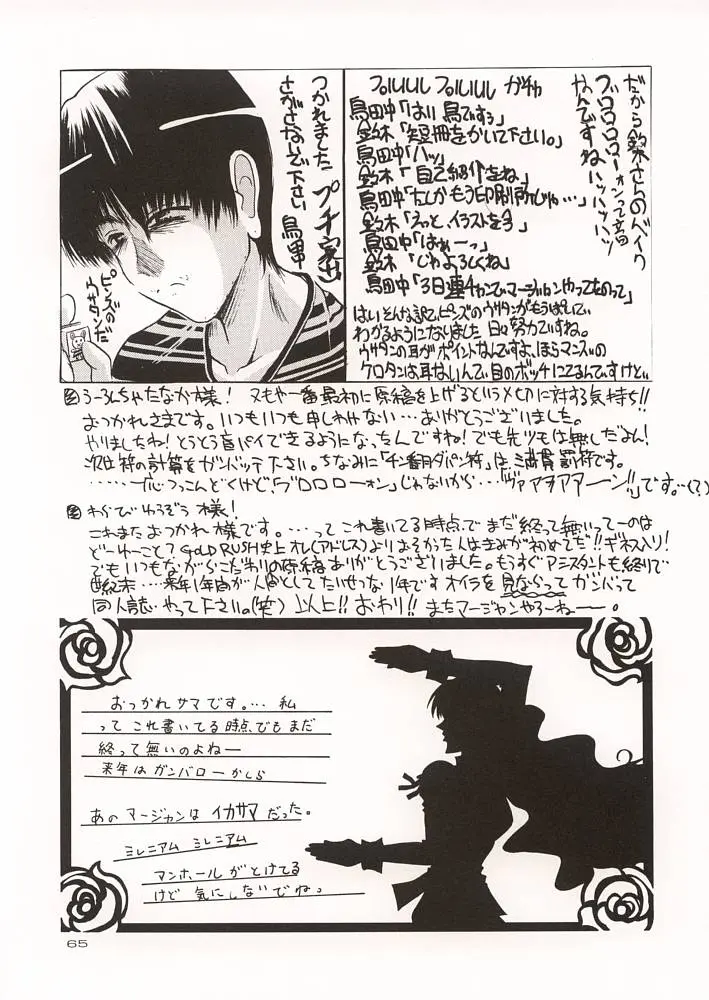 だから鈴木さんのバイク
ブロロロローォンって云う
なんですねハッハッハッ
プルルルル プルルルル ガチャ
鳥田中「はい 鳥ですぅ」
鈴木「短冊をかいて下さい。」
鳥田中「ハッ」
鈴木「自己紹介をね」
鳥田中「たしかもう印刷所じゃ…」
鈴木「えっと、イラストを今」
鳥田中「はぁーっ」
鈴木「じゃよろしくね」
鳥田中「3日連チャンでマージャンやってものって」
はい そんな訳で、ピンズのウサタンがもうぱいして
わかるようになりました 日々努力ですね。
ウサタンの耳がポイントなんですよ、ほらマンズの
ケロタンは耳ないんで目のボッチにてるんですけど…
つかれました
さがさないで下さい 鳥田中
プチ家出
ピンズのウサタンだ
うーろんちゃたなか様! マもや一番最初に原稿を上げるというメ切に対する気持ち!!
おつかれさまです。いつもいつも申しわけない…ありがとうございました。
やりましたね!とうとう盲パイできるようになったんですね!でも先ヅモは無しだよん!
次は符の計算をガンバッテ下さい。ちなみに「チン番月ダパン符」は、満貫罰符です。
……づいつっこんどくけど、「ブロロローォン」じゃないから…「ヴァアヲアアーン!!」です。…(?)
わかび ゆうぞう 様!
これまたおつかれ様です。…って これ書いてる時点で まだ終って無いってーのは
どーゆーこと? GOLD RUSH史上オレ(アドレス)よりおそかった人はきみが初めてだ!!ギネス入り!
でもいつもながらこだわりの原稿ありがとうございました。もうすぐアシスタントも終りで
世紀末…来年1年間が人間としてたいせつな1年です オイラを見ならってガンバって
同人誌やって下さい。(笑) 以上!! おわり!! またマージャンやろーねー。
おつかれサマです。… 私
って これ書いてる時点でもまだ
終って無いのよねー
来年はガンバローかしら
あのマージャンはイカサマだった。
ミレニアム ミレニアム
マンホールがとけてる
けど 気にしないでねっ
65